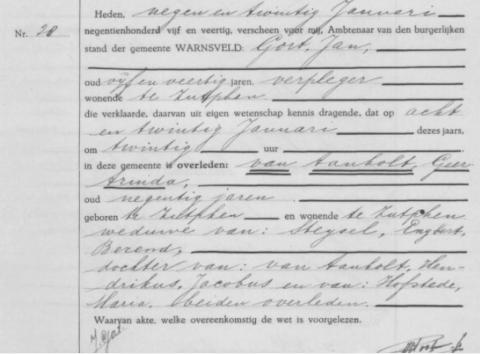 Heden, negen en twintig Januari
Nr. 28
negentienhonderd vijf en veertig, verscheen voor mij, Ambtenaar van den burgerlijken
stand der gemeente WARNSVELD: Gort, Jan,
oud vijf en veertig jaren, verpleger
wonende te Zutphen
die verklaarde, daarvan uit eigen wetenschap kennis dragende, dat op acht
en twintig Januari dezes jaars,
om twintig uur
in deze gemeente is overleden: van Aanholt, Geer
Arinda,
oud negentig jaren
geboren te Zutphen en wonende te Zutphen
weduwe van: Steysel, Engbert,
Berend,
dochter van: van Aanholt, Hen-
drikus, Jacobus en van: Hofstede,
Maria, beiden overleden.
Waarvan akte, welke overeenkomstig de wet is voorgelezen.
J. Gort